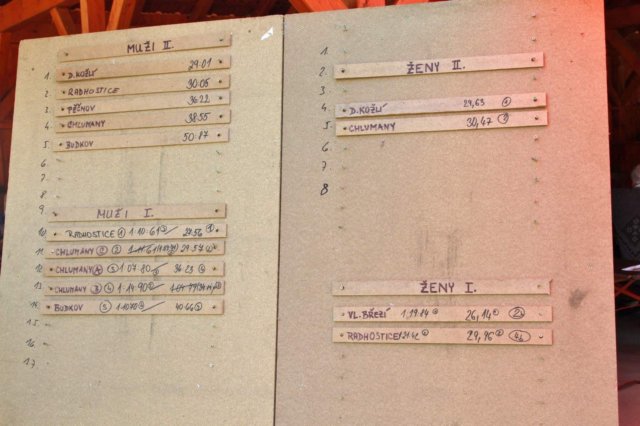 MUŽI II.
1. D.KOŽLÍ 29.01
2. RADHOSTICE 30.06
3. PĚČNOV 36.22
4. CHLUMANY 38.55
5. BUDKOV 50.87
6
7.
8.
9. MUŽI I.
10. RADHOSTICE 1 1.10.61 28.56 1
11. CHLUMANY 2 29.57
12. CHLUMANY A 3 1.07.80 36.23
13. CHLUMANY B 4 1.14.90
14. BUDKOV 5 40.66
15.
16.
17.
1.
2. ŽENY II.
3.
4. D.KOŽLÍ 29,63
5. CHLUMANY 30,47
6.
7.
8
ŽENY I.
VL.BŘEZÍ 1.19.84 26,14
RADHOSTICE 29,96